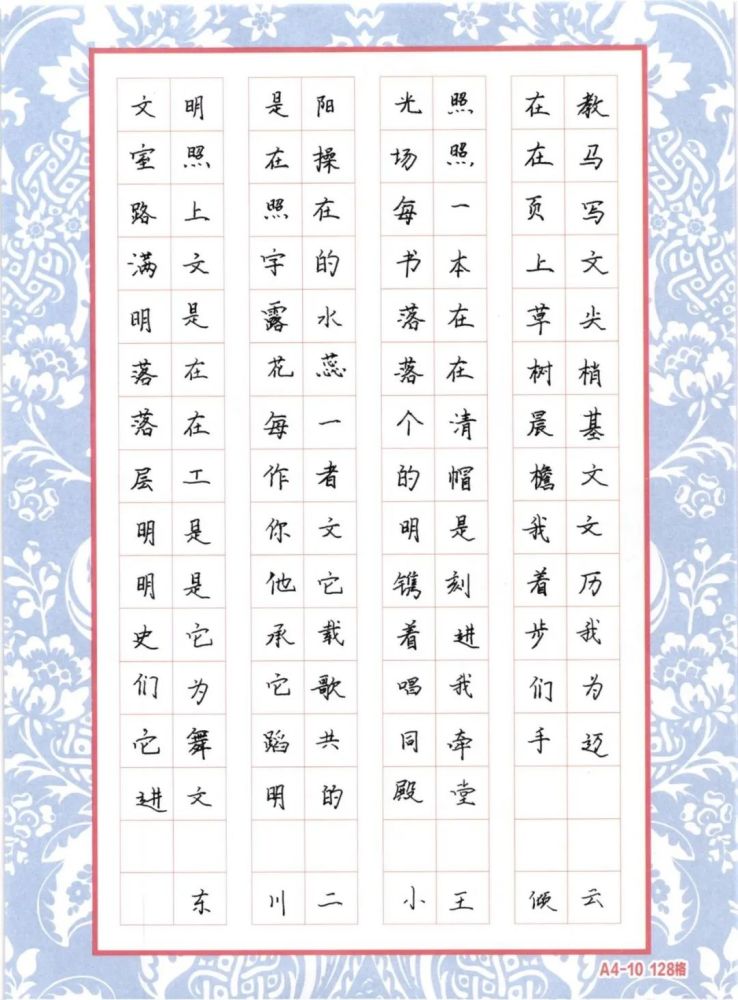 文明是阳光照在教
室照在操场照在马
路上照在每一页写
满文字的书本上文
明是露水落在草尖
落在花蕊落在树梢
落在每一个清晨基
层工作者的帽檐文
明是你文明是我文
明是他它镌刻着历
史它承载着进步我
们为它歌唱我们为
它舞蹈共同牵手迈
进文明的殿堂
东川二小王倾云
A4-10 128格